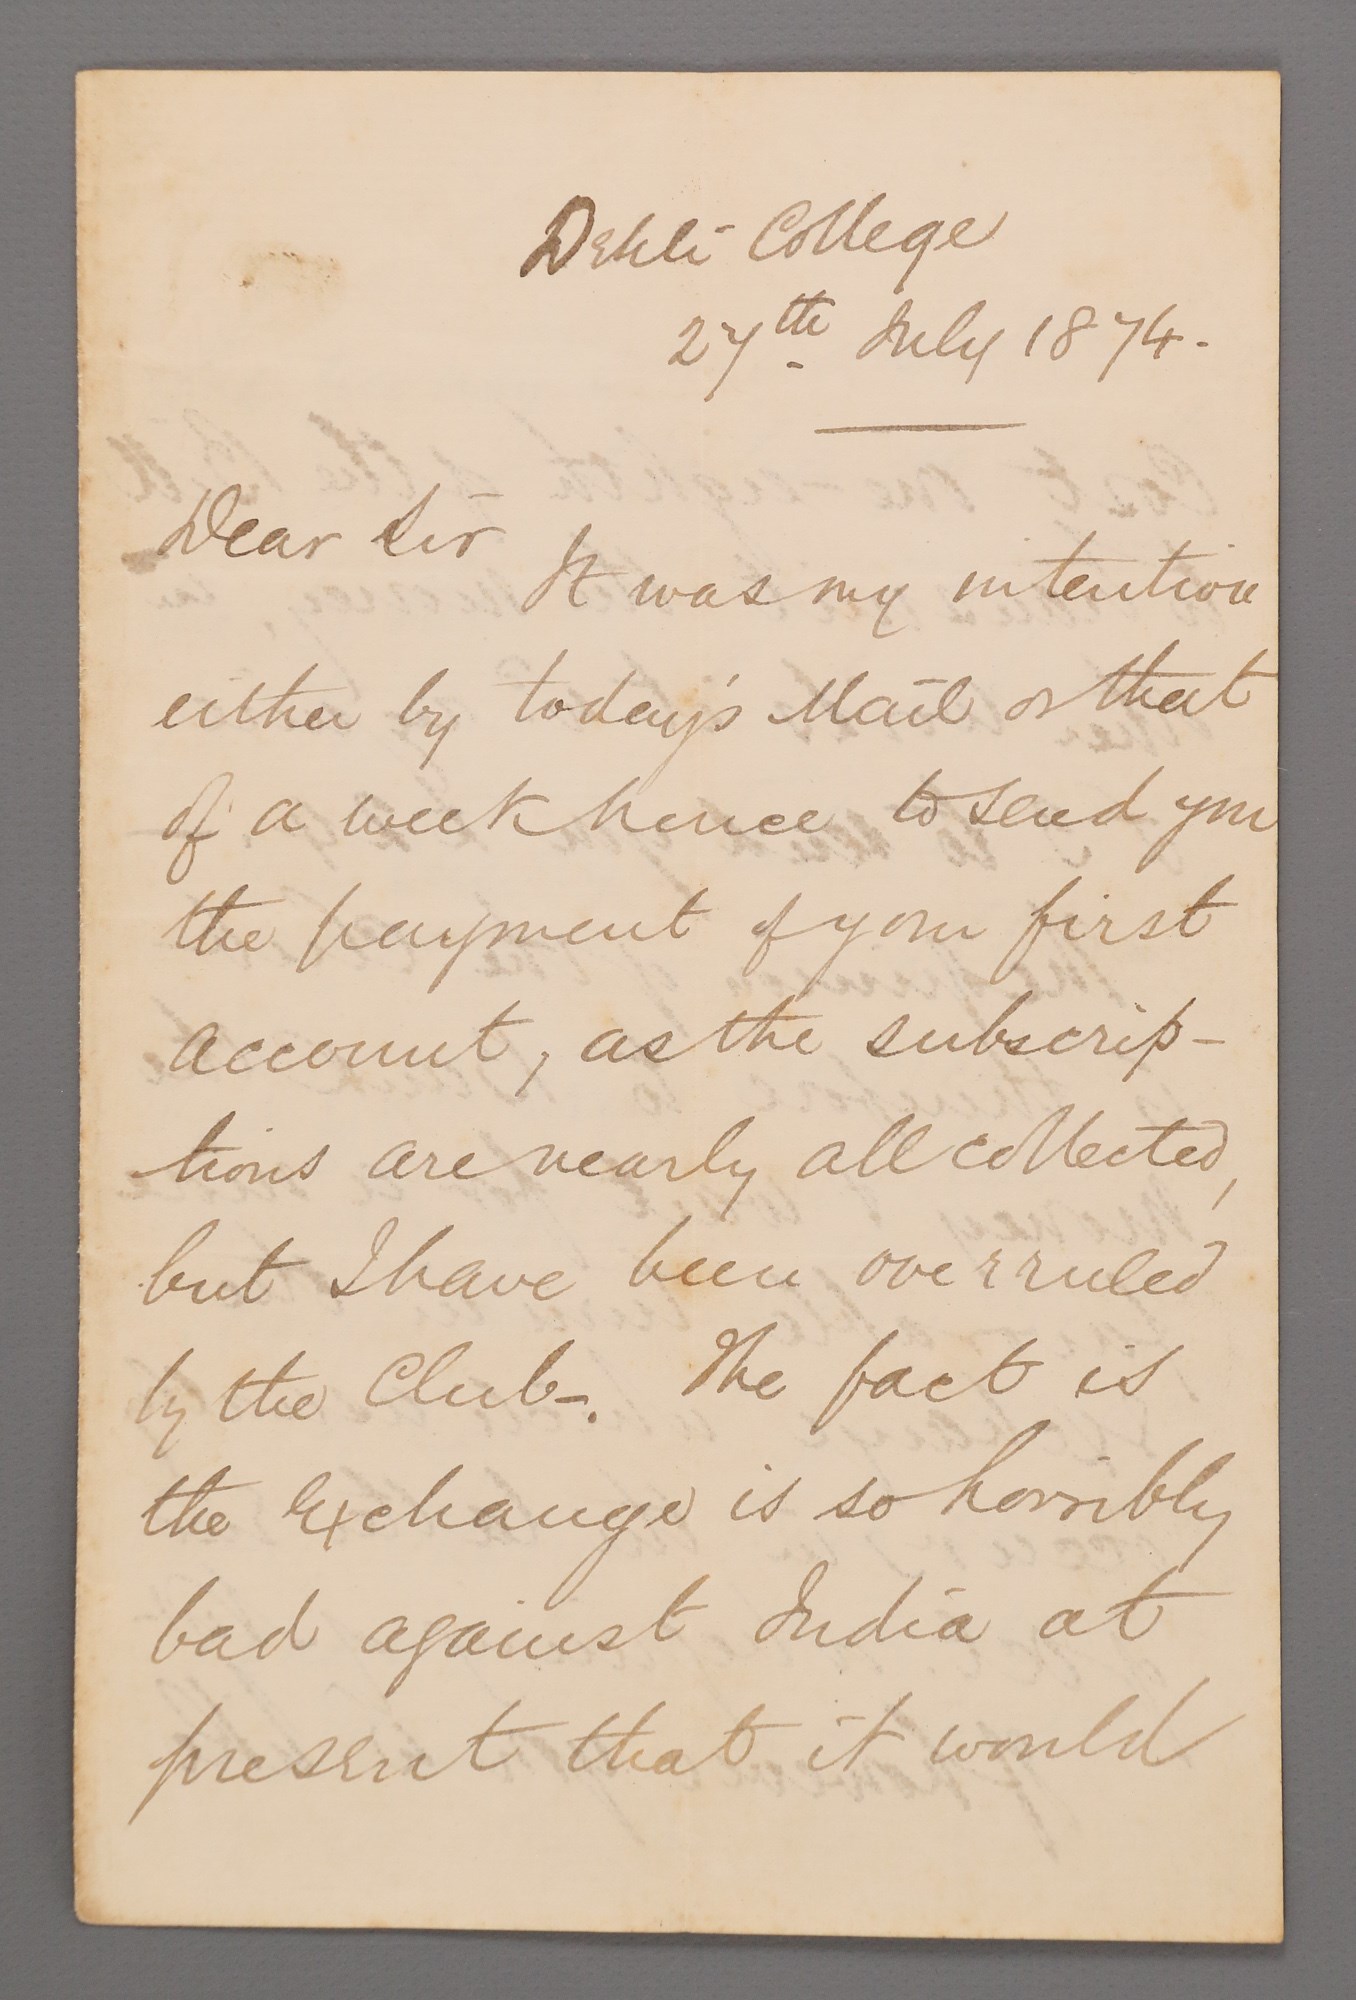 Dehli College
27th July 1874.
Dear Sir
It was my intention
either by today's Mail or that
of a week hence to send you
the payment of your first
account, as the subscrip-
tions are nearly all collected,
but I have been overruled
by the Club-. The fact is
the Exchange is so horribly
bad against India at
present that it would